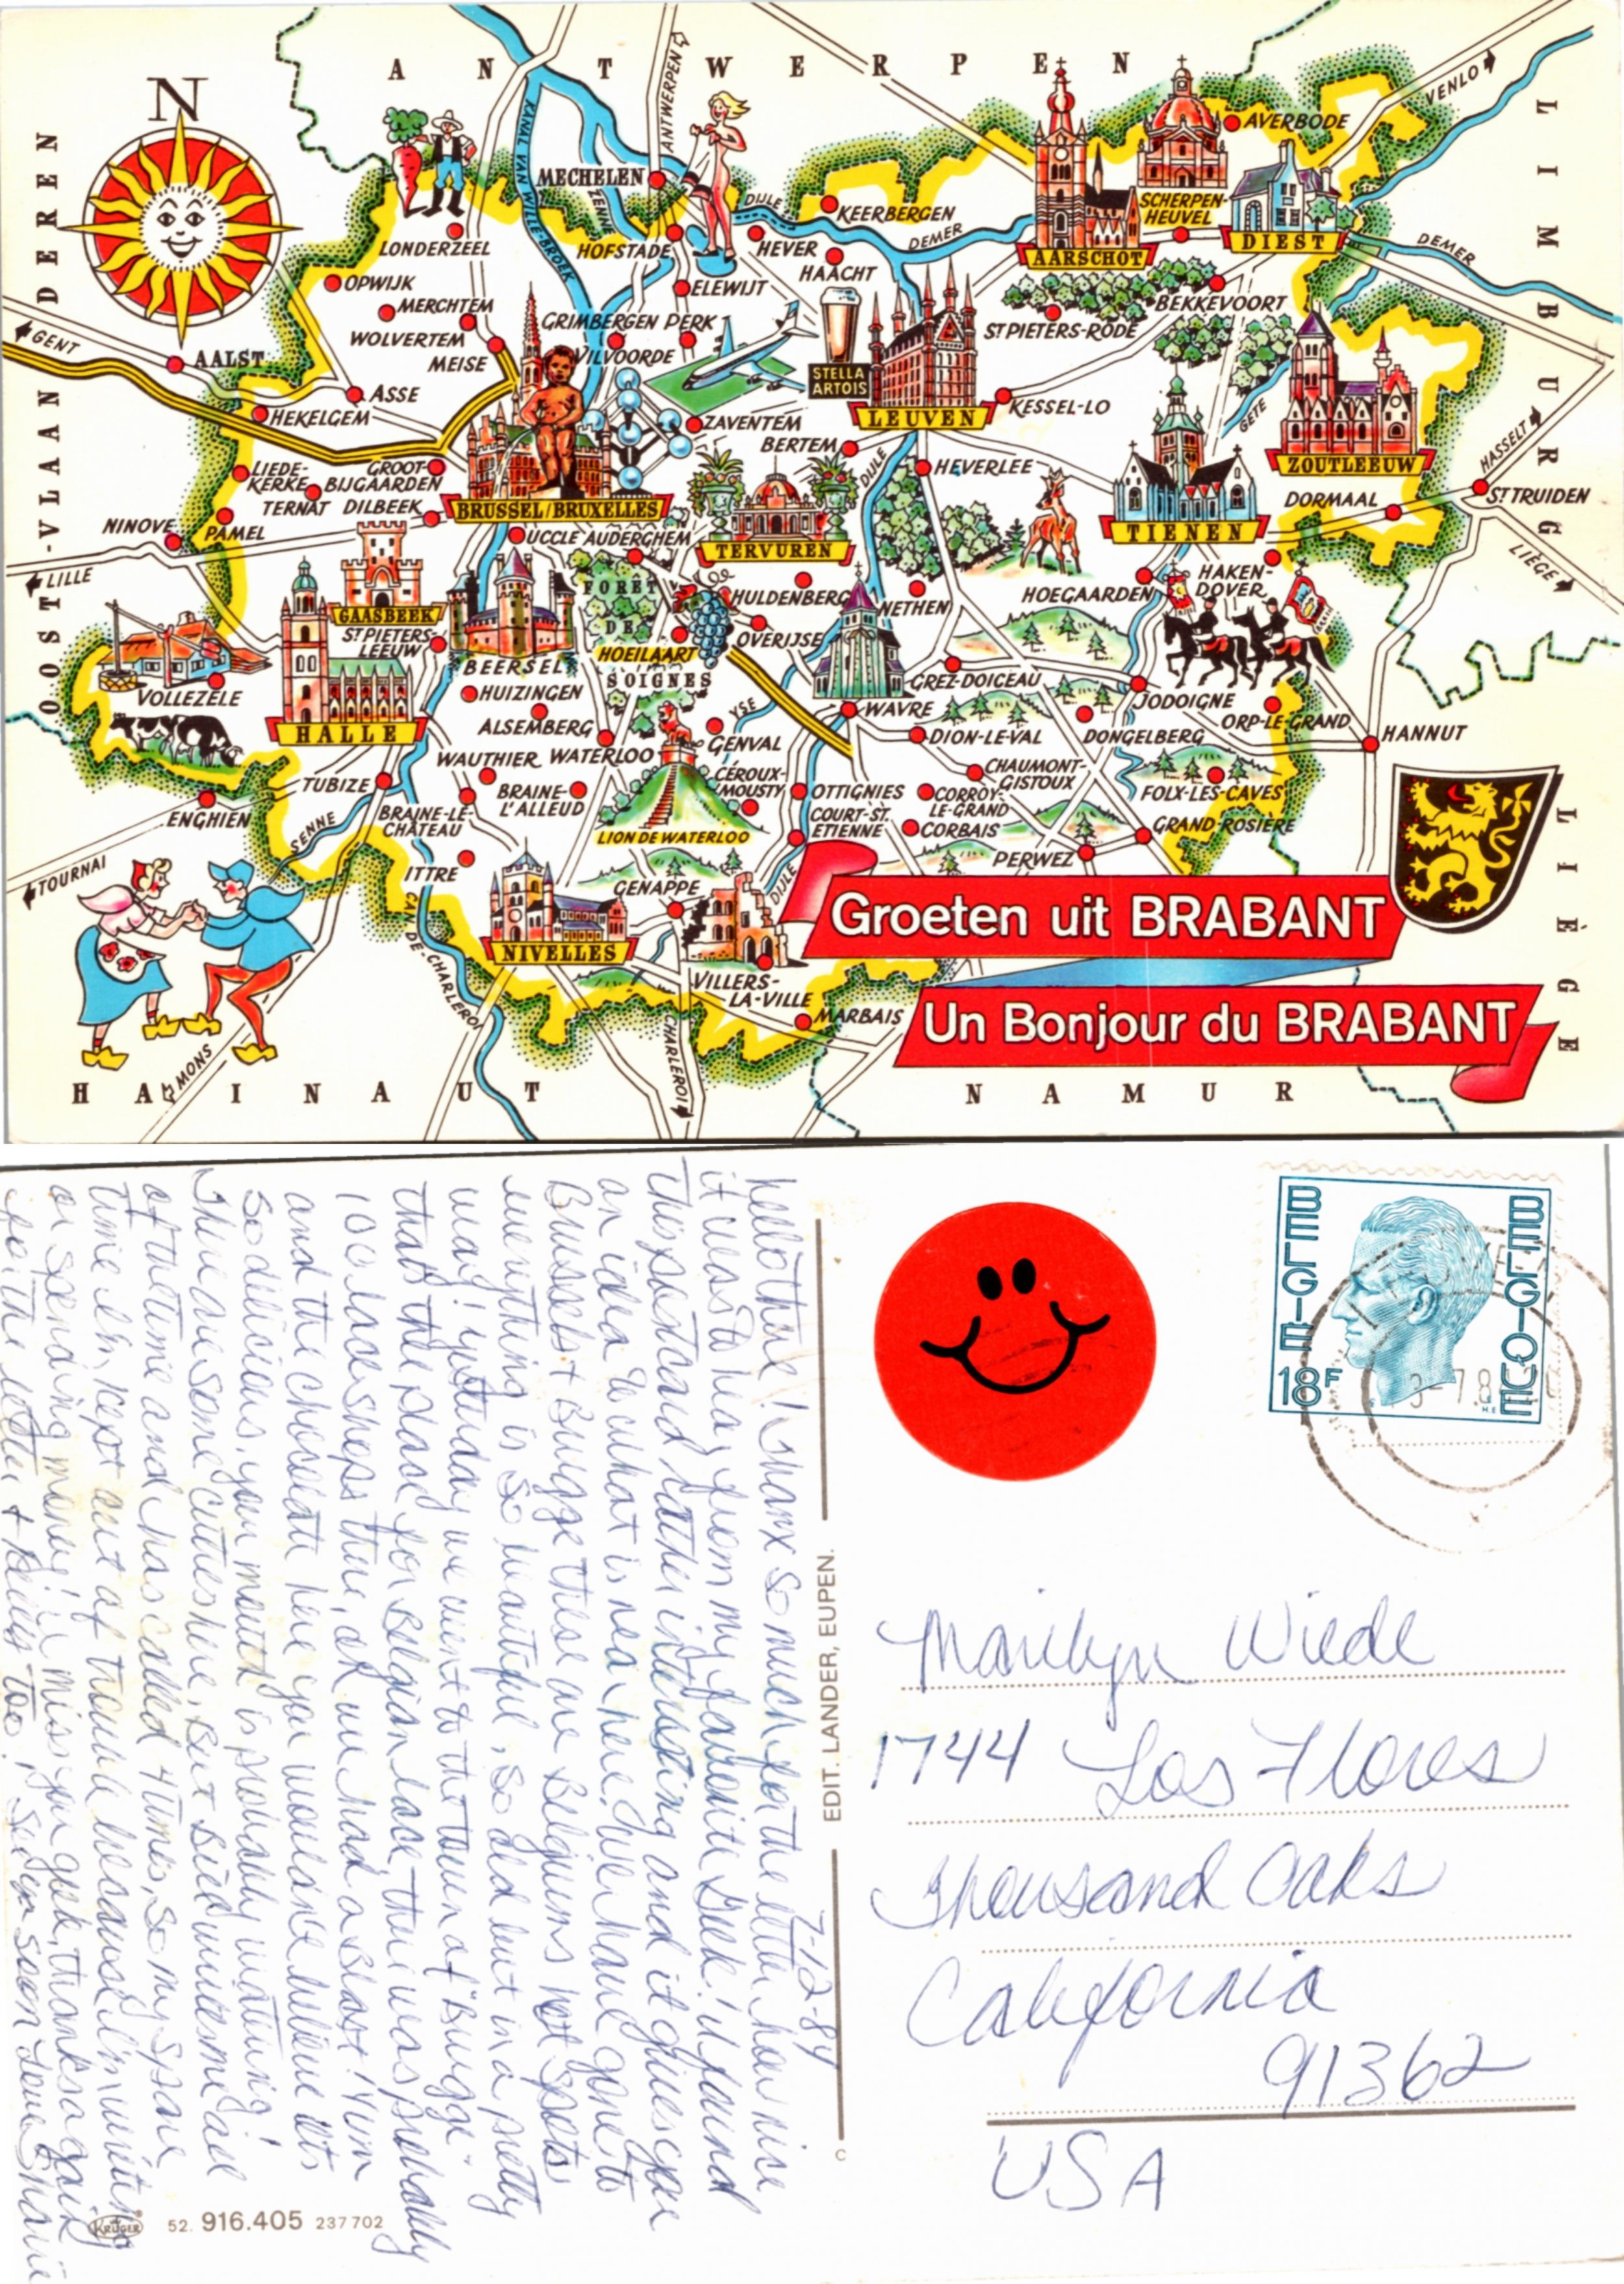 A N T W E R P E N
N
ANTWERPEN
VENLO
LIMBURG
OOST-VLAANDEREN
KANAAL VAN WILLEBROEK
AVERBODE
MECHELEN
ZENNE
DIJLE
KEERBERGEN
DEMER
SCHERPEN-
HEUVEL
DIEST
DEMER
LONDERZEEL
HOFSTADE
HEVER
AARSCHOT
HAACHT
OPWIJK
ELEWIJT
MERCHTEM
BEKKEVOORT
WOLVERTEM
GRIMBERGEN PERK
ST PIETERS-RODE
GENT
MEISE
VILVOORDE
AALST
STELLA
ARTOIS
ASSE
LEUVEN
KESSEL-LO
GETE
HEKELGEM
ZAVENTEM
HASSELT
BERTEM
DIJLE
LIEDE-
KERKE
GROOT-
BIJGAARDEN
HEVERLEE
ZOUTLEEUW
TERNAT DILBEEK
BRUSSEL/BRUXELLES
DORMAAL
ST TRUIDEN
NINOVE
PAMEL
UCCLE AUDERGHEM
TERVUREN
TIENEN
LIÈGE
LILLE
FORÊT
DE
SOIGNES
HULDENBERG
NETHEN
HOEGAARDEN
HAKEN-
DOVER
GAASBEEK
ST PIETERS-
LEEUW
OVERIJSE
HOEILAART
BEERSEL
VOLLEZELE
HUIZINGEN
GREZ-DOICEAU
JODOIGNE
HALLE
ALSEMBERG
YSE
WAVRE
ORP-LE-GRAND
GENVAL
DION-LE-VAL
DONGELBERG
HANNUT
WAUTHIER
WATERLOO
CÉROUX-
MOUSTY
CHAUMONT-
GISTOUX
TUBIZE
BRAINE-
L'ALLEUD
OTTIGNIES
CORROY-
LE-GRAND
FOLX-LES-CAVES
ENGHIEN
SENNE
BRAINE-LE-
CHÂTEAU
COURT-ST.
ETIENNE
CORBAIS
GRAND-ROSIÈRE
LION DE WATERLOO
PERWEZ
TOURNAI
ITTRE
GENAPPE
DIJLE
CAN. DE CHARLEROI
NIVELLES
VILLERS-
LA-VILLE
MARBAIS
CHARLEROI
MONS
LIÈGE
Groeten uit BRABANT
Un Bonjour du BRABANT
H A I N A U T
N A M U R
BELGIE
BELGIQUE
18F
7-12-84
hello there! thanx so much for the letter, how nice
it was to hear from my favorite Geek! I found
this postcard rather interesting and it gives you
an idea to what is near here. We have gone to
Brussels + Brugge these are Belgiums hot spots
everything is so beautiful, so old but in a pretty
way! yesterday we went to the town of "Brugge"
thats the place for Belgian lace, there was probably
100 lace shops there, ok we had a Blast! Yum
and the chocolate here you wouldn't believe its
so delicious, your mouth is probably watering!
There are some cuties here, But
of the time and has called 4 times, so my spare
time I'm kept out of trouble because I'm writing
or spending money! I miss you geek, thanks again
for the letter +
too! See ya soon Love
EDIT. LANDER, EUPEN.
C
KRÜGER
52. 916.405 237 702
Marilyn Wiede
1744 Los Flores
Thousand Oaks
California
91362
USA